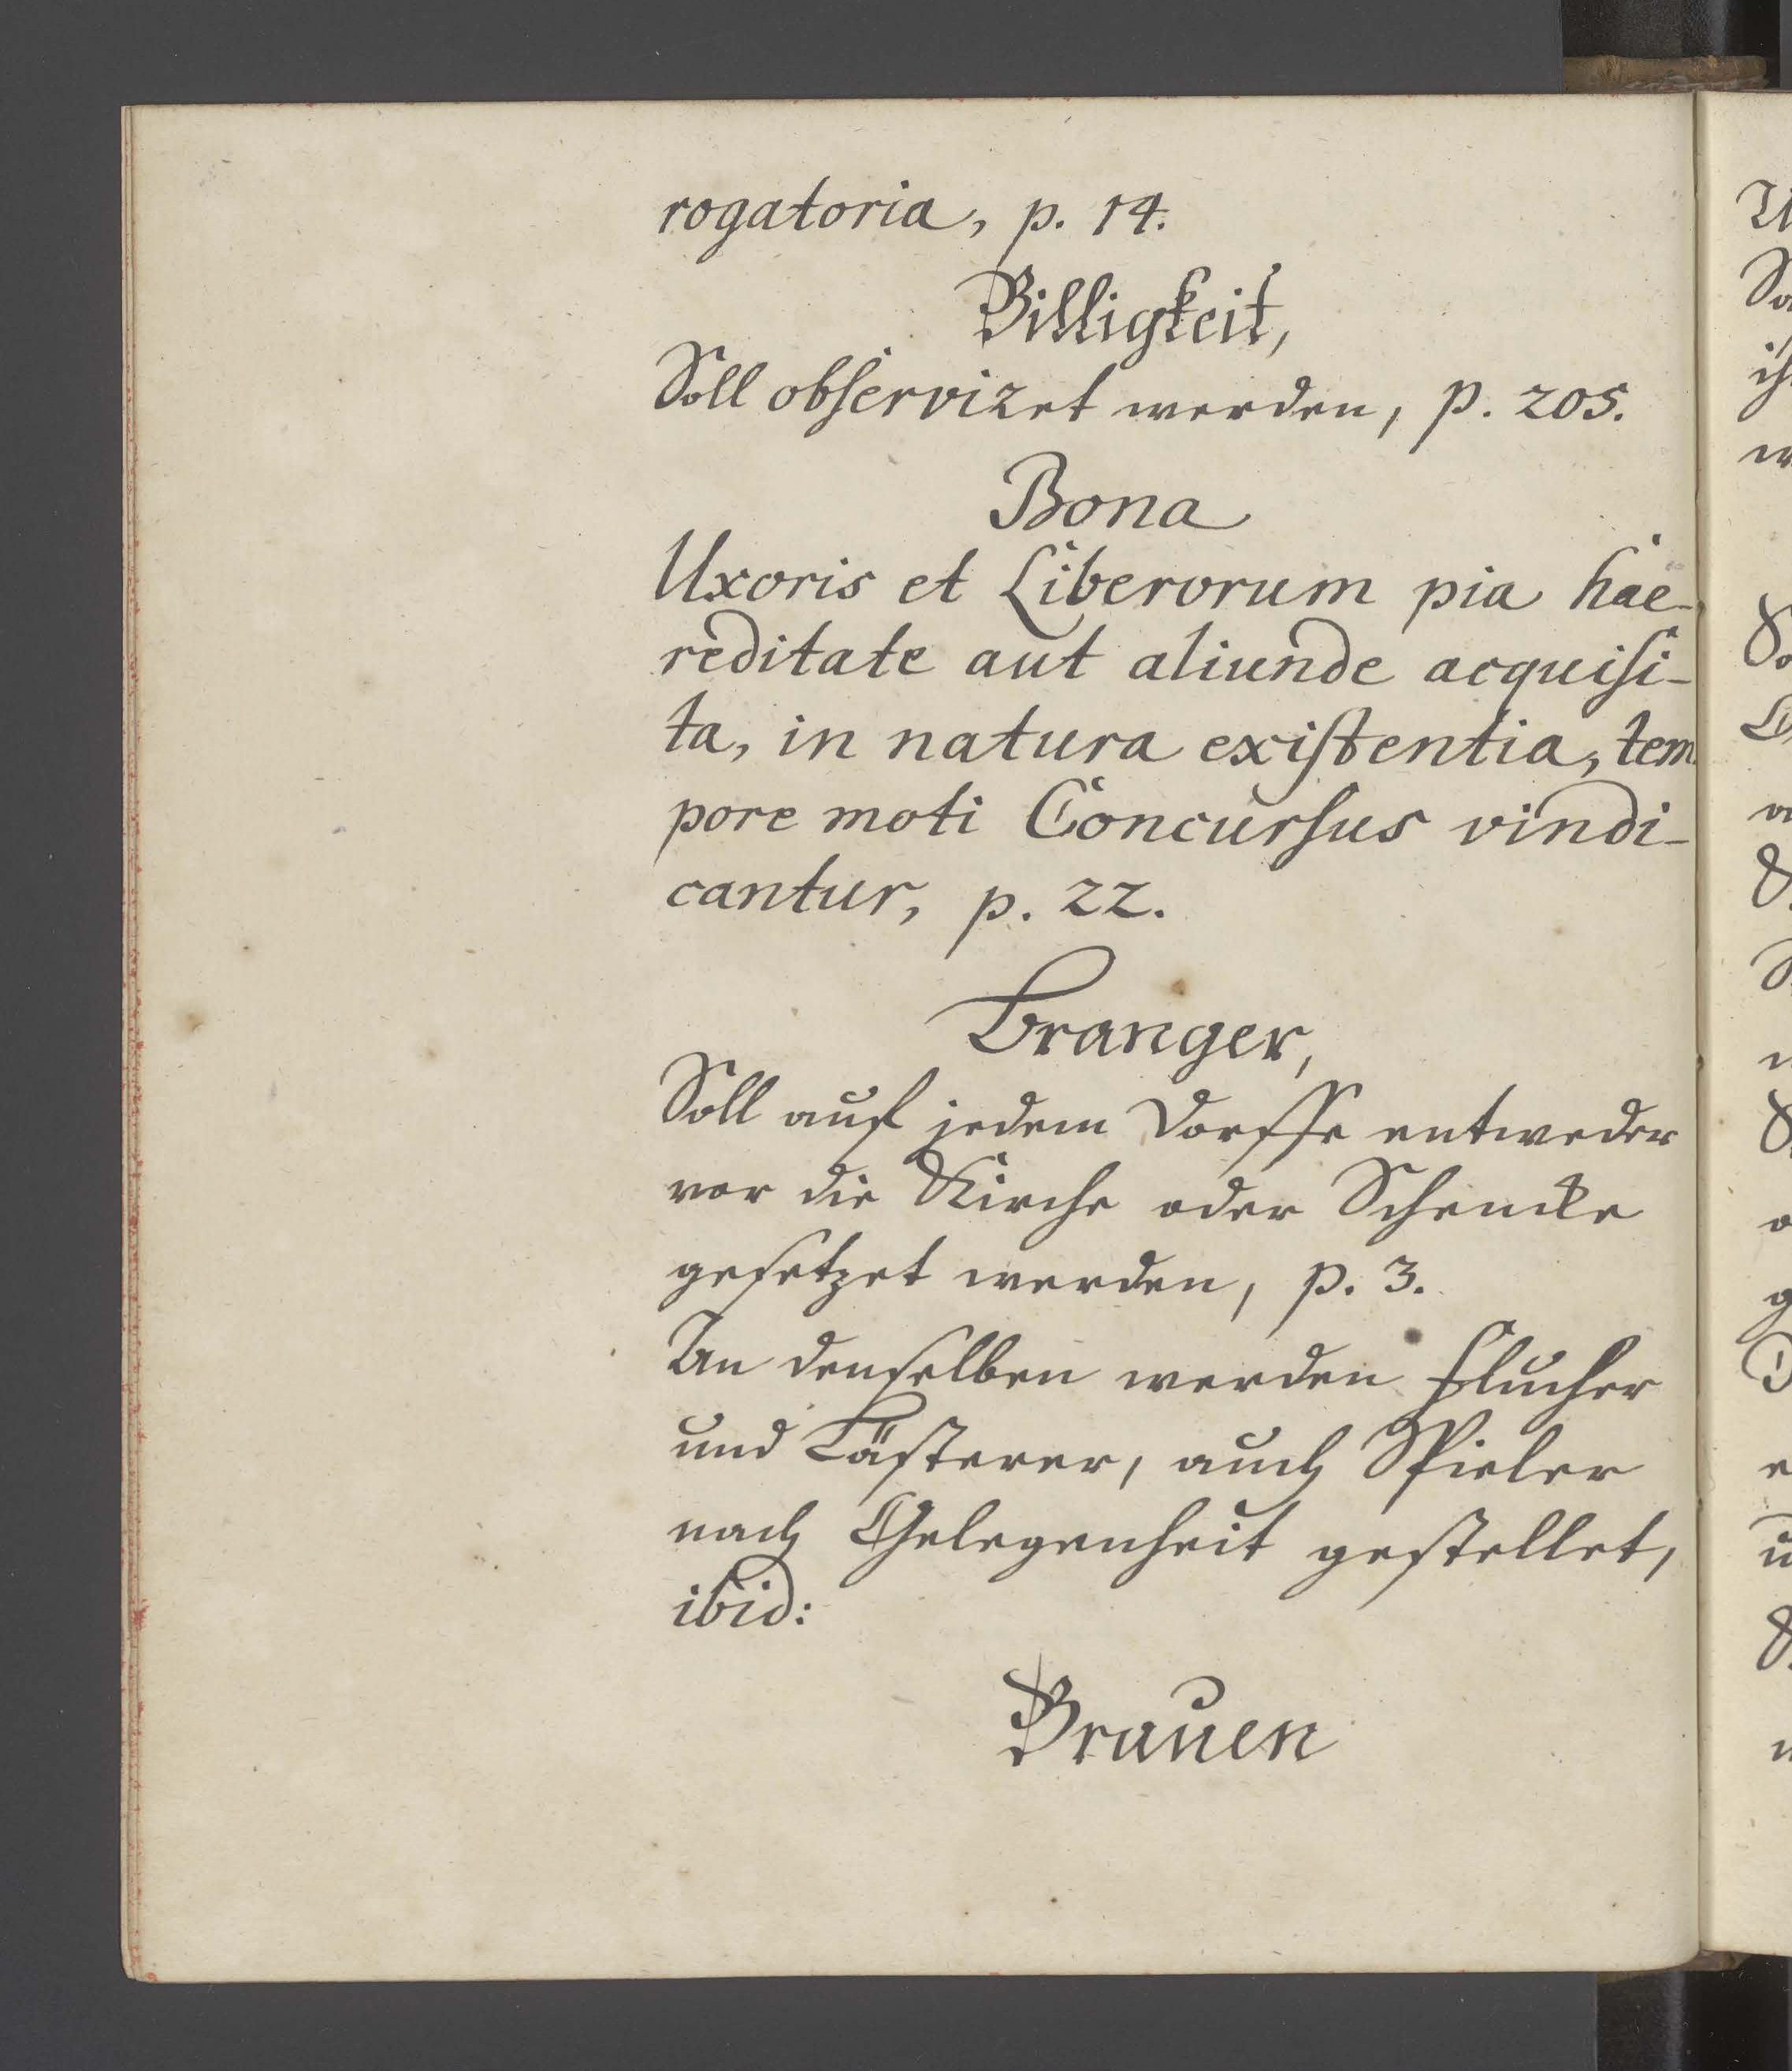 rogatoria, p. 14.
Billigkeit,
Soll observiret werden, p. 205.
Bona
Uxoris et Liberorum pia hae-
reditate aut aliunde acquisi-
ta, in natura existentia, tem
pore moti Concursus vindi-
cantur, p. 22.
Branger,
Soll auf jedem Dorffe entweder
vor die Kirche oder Schencke
gesetzet werden, p. 3.
An denselben werden Flucher
und Lästerer, auch Spieler
nach Gelegenheit gestellet,
ibid:
Brauen